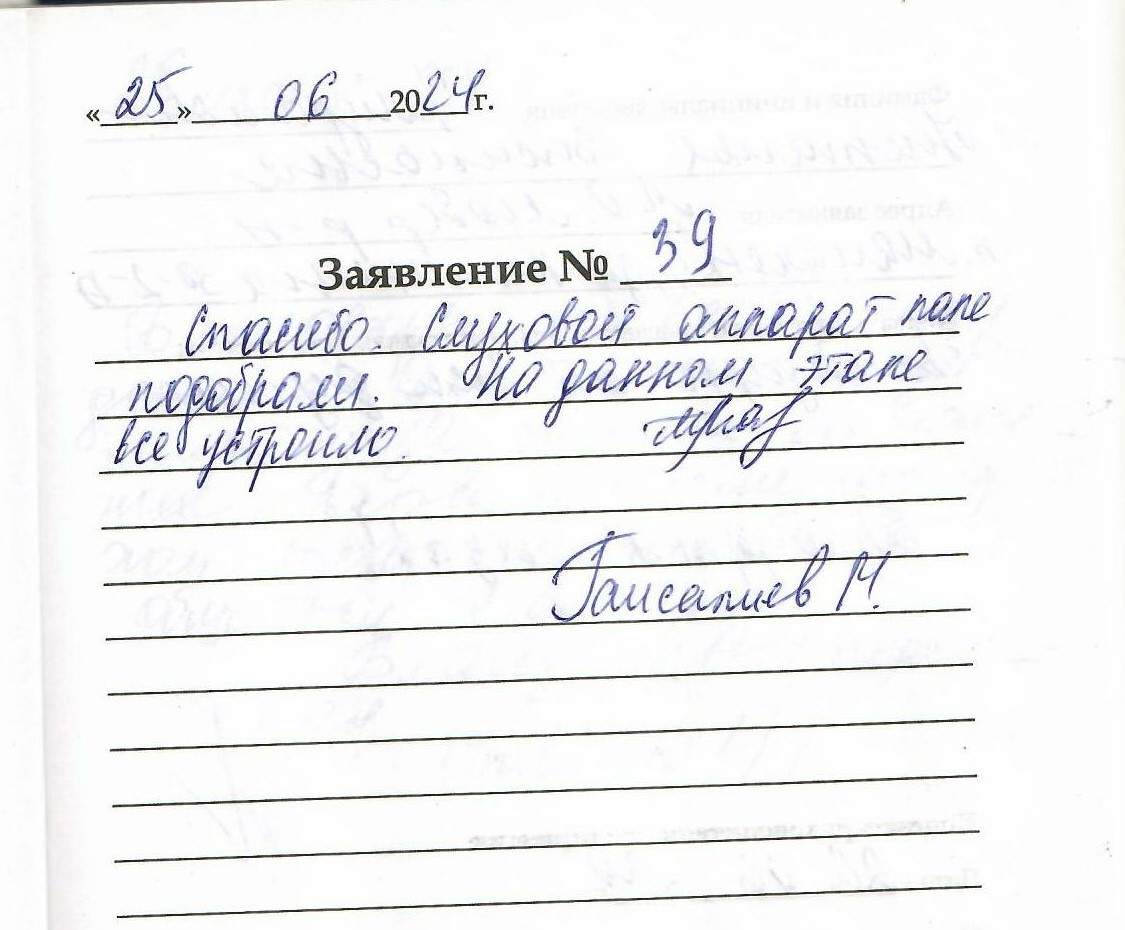 «25» 06 2024 г.
Заявление № 39
Спасибо. Слуховой аппарат папе
подобрали. На данном этапе
все устроило.
М.